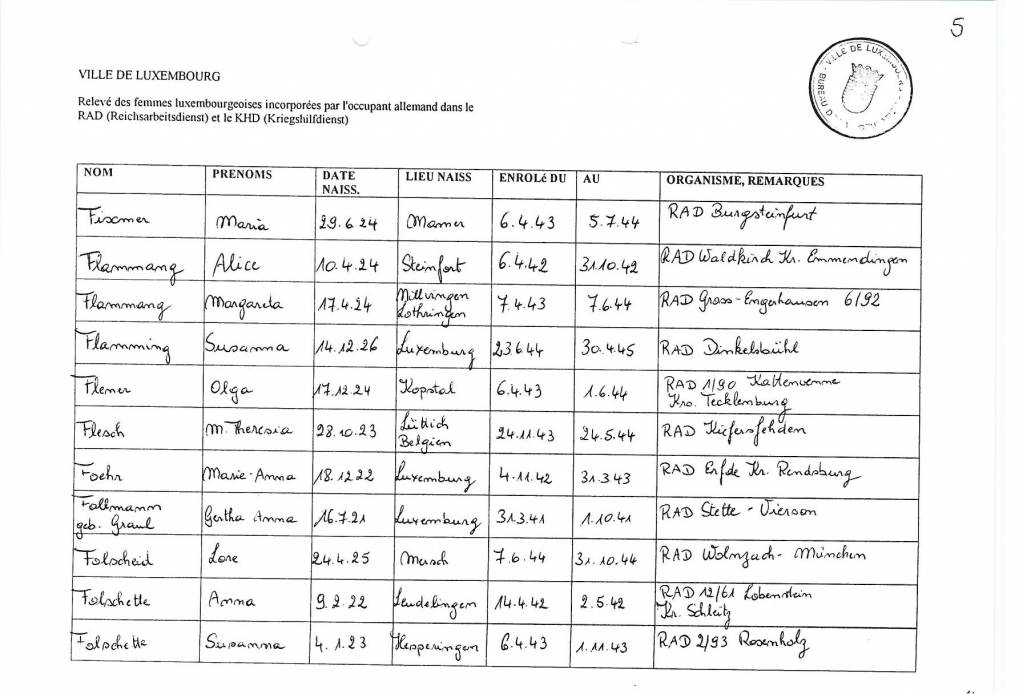 5
VILLE DE LUXEMBOURG
Relevé des femmes luxembourgeoises incorporées par l'occupant allemand dans le
RAD (Reichsarbeitsdienst) et le KHD (Kriegshilfdienst)
VILLE DE LUXEMBOURG
BUREAU
NOM PRENOMS DATE NAISS. LIEU NAISS ENROLé DU AU ORGANISME, REMARQUES
Fixmer Maria 29.6.24 Mamer 6.4.43 5.7.44 RAD Burgsteinfurt
Flammang Alice 10.4.24 Steinfort 6.4.42 31.10.42 RAD Waldkirch Kr. Emmendingen
Flammang Margareta 17.4.24 Nilvingen Lothringen 7.4.43 7.6.44 RAD Gross-Engerhausen 6/92
Flamming Susanna 14.12.26 Luxemburg 23644 30.4.45 RAD Dinkelsbühl
Flemer Olga 17.12.24 Kopstal 6.4.43 1.6.44 RAD 1/90 Kattenvenne
Krs. Tecklenburg
Flesch M. Theresia 28.10.23 Lüttich Belgien 24.11.43 24.5.44 RAD Kiefersfelden
Foehr Marie-Anna 18.12.22 Luxemburg 4.11.42 31.3.43 RAD Erfde Kr. Rendsburg
Follmann
geb. Graul Gertha Anna 16.7.21 Luxemburg 31.3.41 1.10.41 RAD Stette - Vierson
Folscheid Lore 24.4.25 Mersch 7.6.44 31.10.44 RAD Wolnzach - München
Folschette Anna 9.2.22 Leudelingen 14.4.42 2.5.42 RAD 12/61 Lobenstein
Kr. Schleitz
Folschette Susanna 4.1.23 Hesperingen 6.4.43 1.11.43 RAD 2/93 Rosenholz